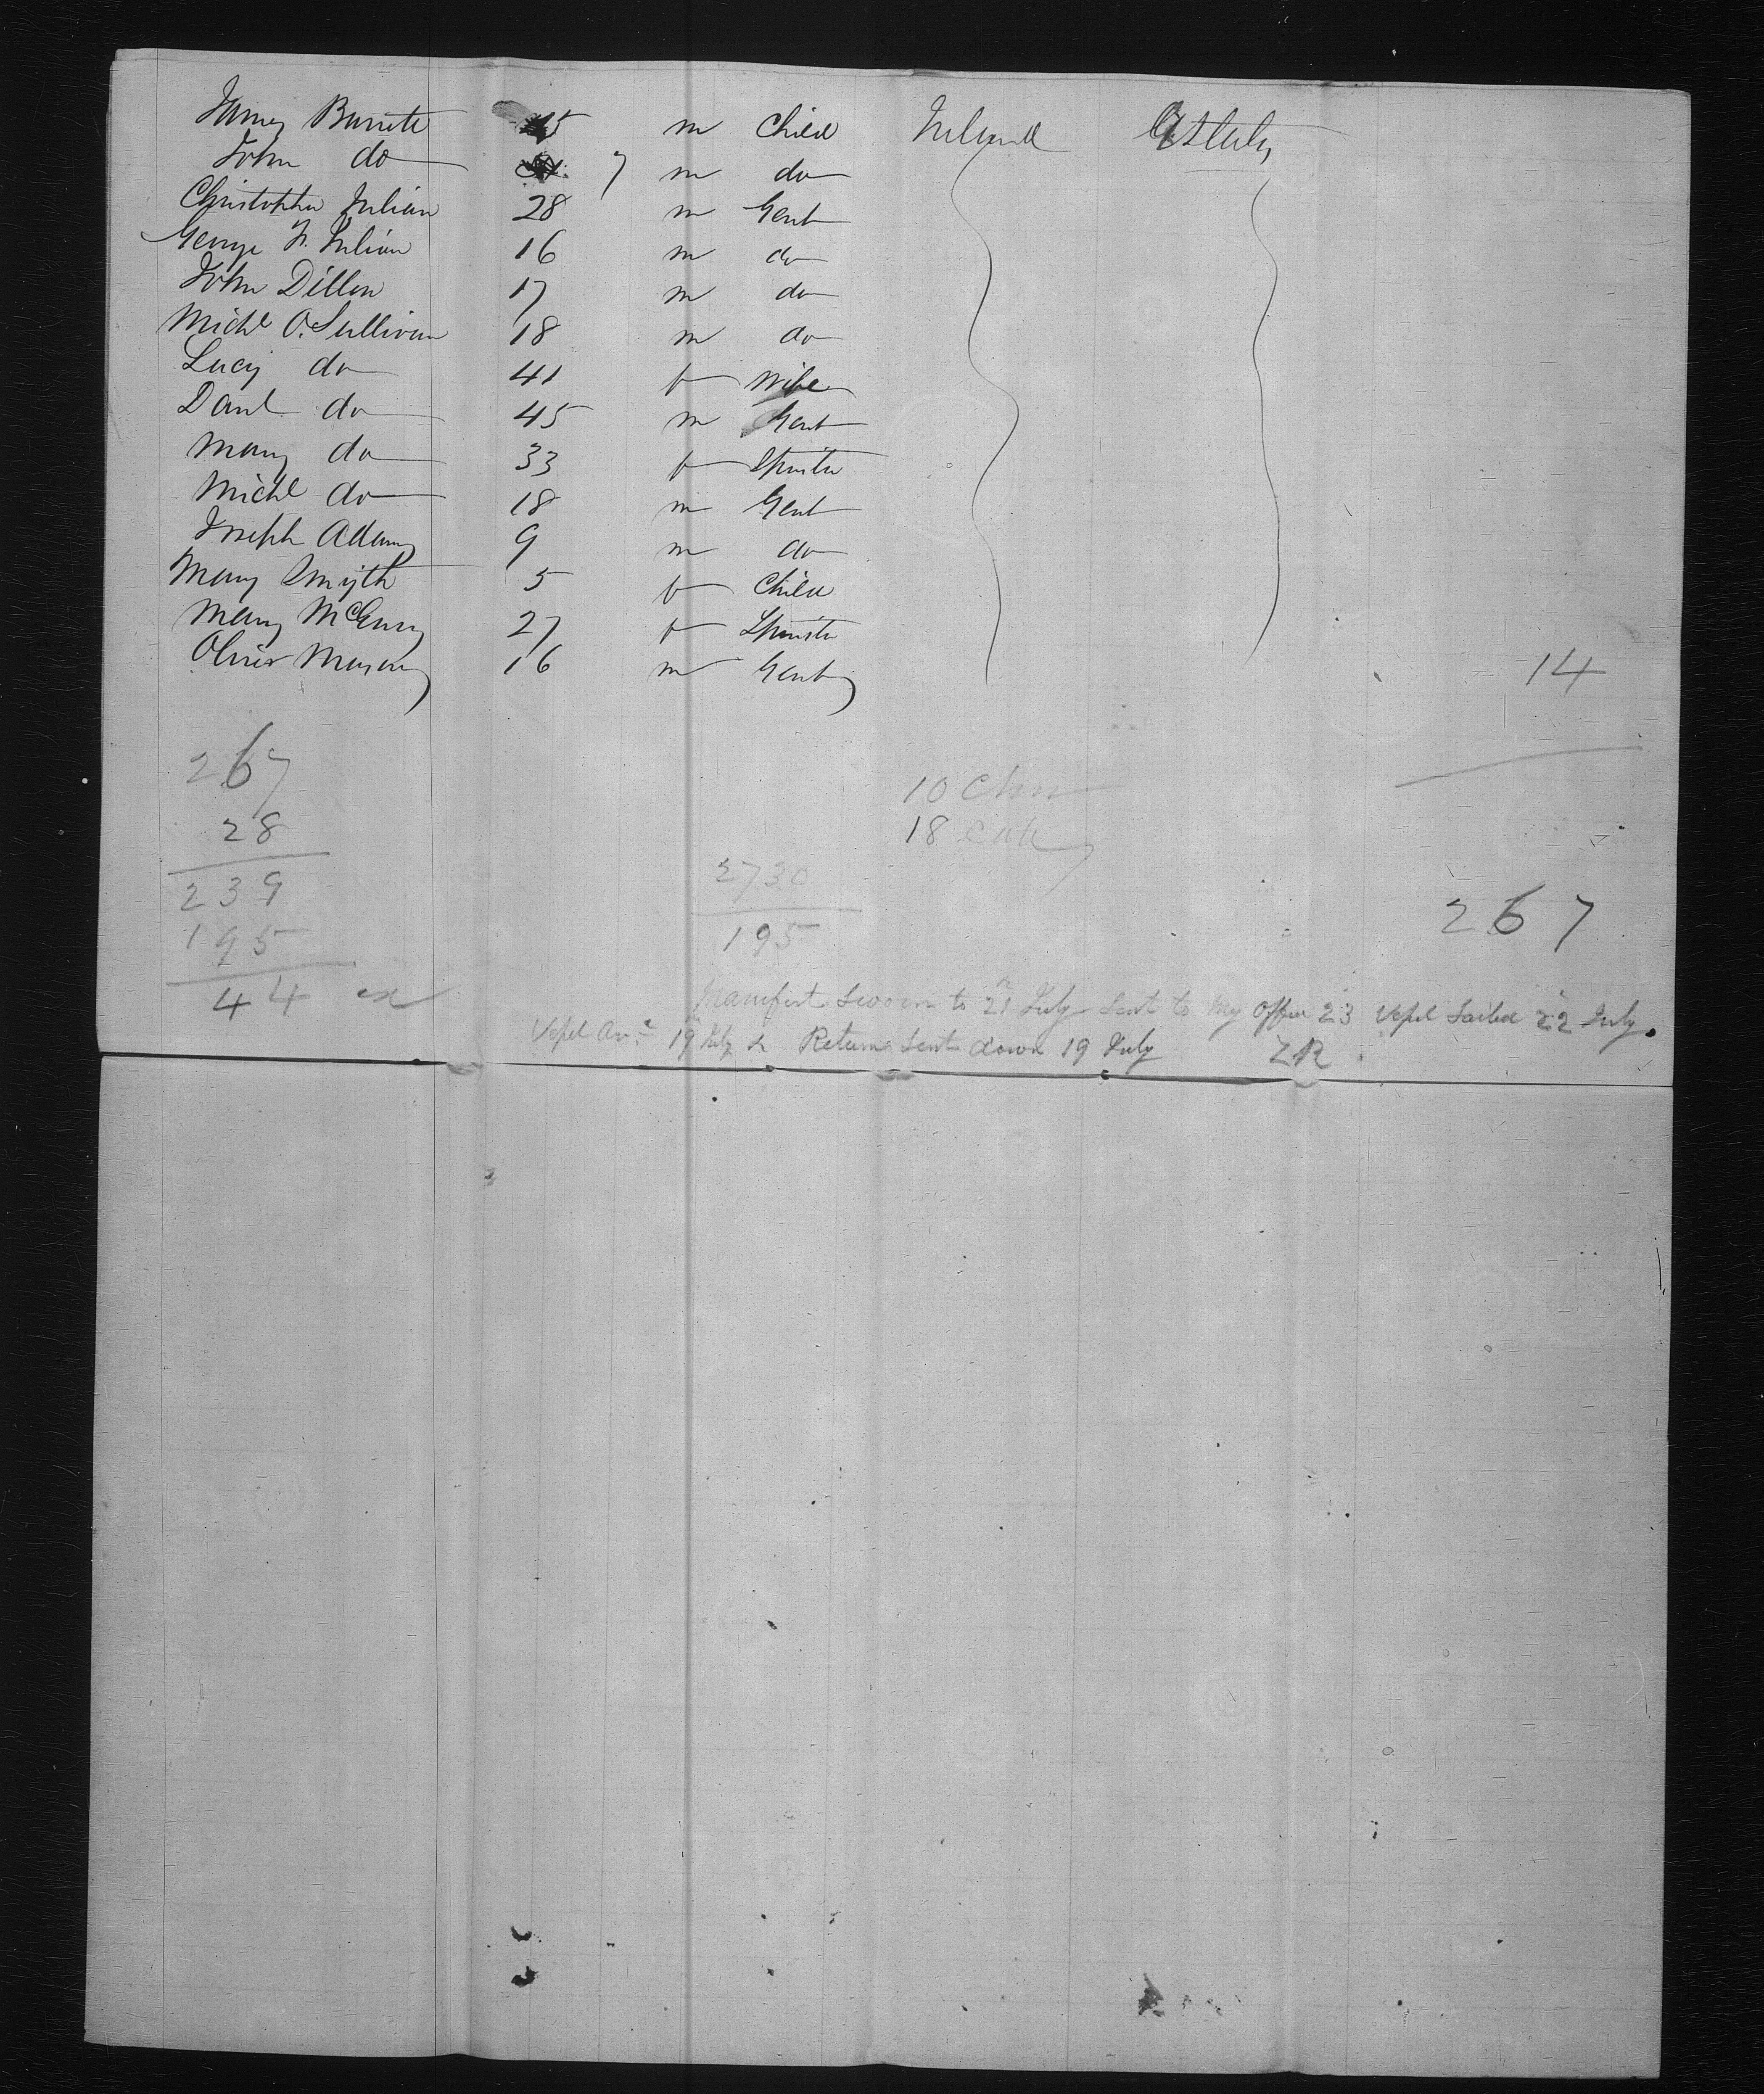 James Barrett 5 m Child Ireland U States
John do 7 m do
Christopher Julian 28 m Gent
George F. Julian 16 m do
John Dillon 17 m do
Michl O'Sullivan 18 m do
Lucy do 41 f Wife
Danl do 45 m Gent
Mary do 33 f Spinster
Michl do 18 m Gent
Joseph Adams 9 m do
Mary Smyth 5 f Child
Mary McEnery 27 f Spinster
Oliver 16 m Gent
14
267
28
239
195
44 ex
10 Chn
18
2730
195
267
Manifest Sworn to 21 July Sent to My Office 23 Vessel Sailed 22 July.
Vessel Arrd 19 July & Returns Sent down 19 July ZR